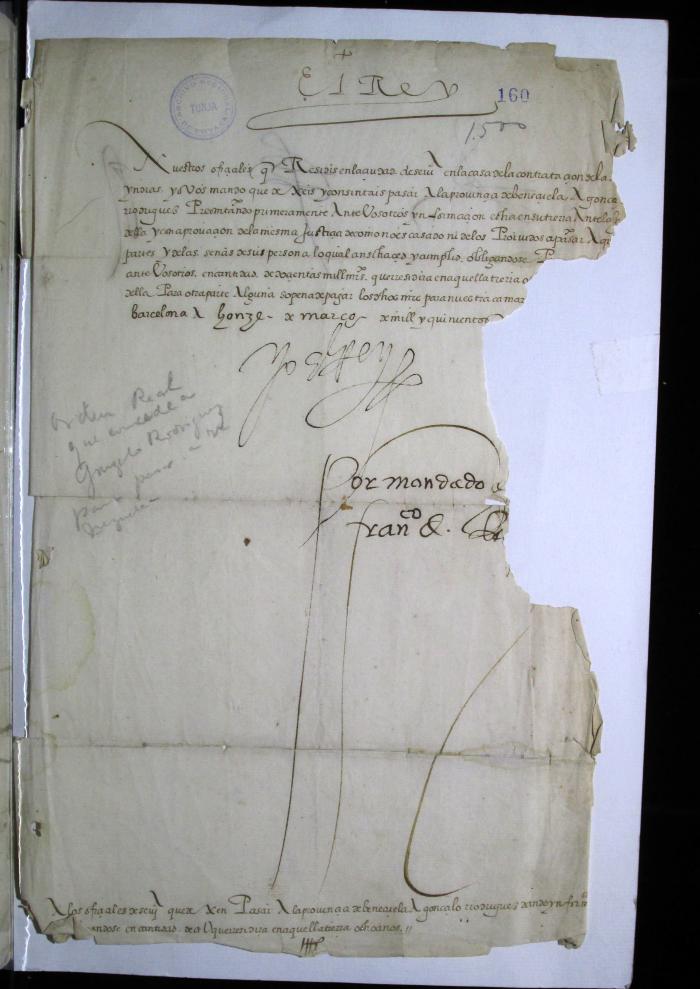 El Rey
160
1.500
ARCHIVO REGIONAL DE BOYACA
TUNJA
Nuestros ofiçiales q̄ Residis en la çiudad de seui^a en la casa de la contrataçion de las
yndias yo Vos mando que dexeis y consintais pasar A la prouinçia de beneçuela A gonçalo
rrodrigues Presentando primeramente Ante Vosotros ynformaçion echa en su tierra Ante la
della y con aprouaçion de la mesma Justiçia de como no es casado ni de los Proiuidos a pasar A
partes y de las señas de su persona lo qual ansi haçed y cumplid obligandose
ante Vosotros en cantidad de doçientas mill mrs. que rresidira en aquella tierra
della Para otra parte Alguna so pena de pagar los dhos mrs para nuestra camar
barcelona A honze de março de mill y quinientos
Yo el Rey
Orden Real
que concede a
Gonzalo Rodriguez
para pasar a
Por mandado
fran^co de
A los ofiçiales de seui^a que dexen Pasar A la prouinçia de beneçuela A gonçalo rrodrigues dando ynfor
andose en cantidad de que rresidira en aquella tierra ocho años //